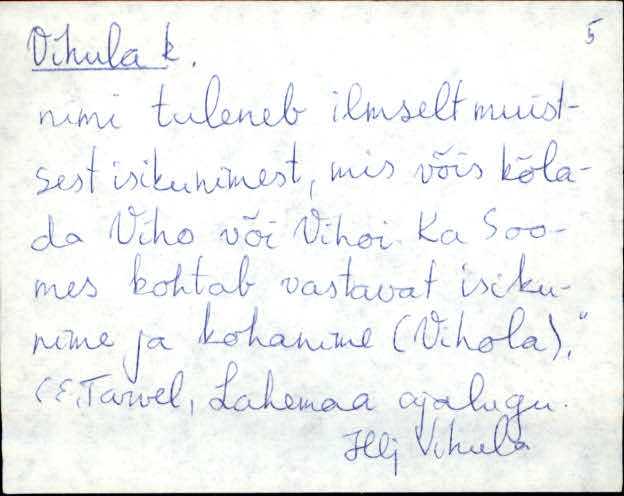 5
Vihula k.
nimi tuleneb ilmselt muist-
sest isikunimest, mis võis kõla-
da Viho või Vihoi. Ka Soo-
mes kohtab vastavat isiku-
nime ja kohanime (Vihola)."
(E. Tarvel, Lahemaa ajalugu.
Vihula